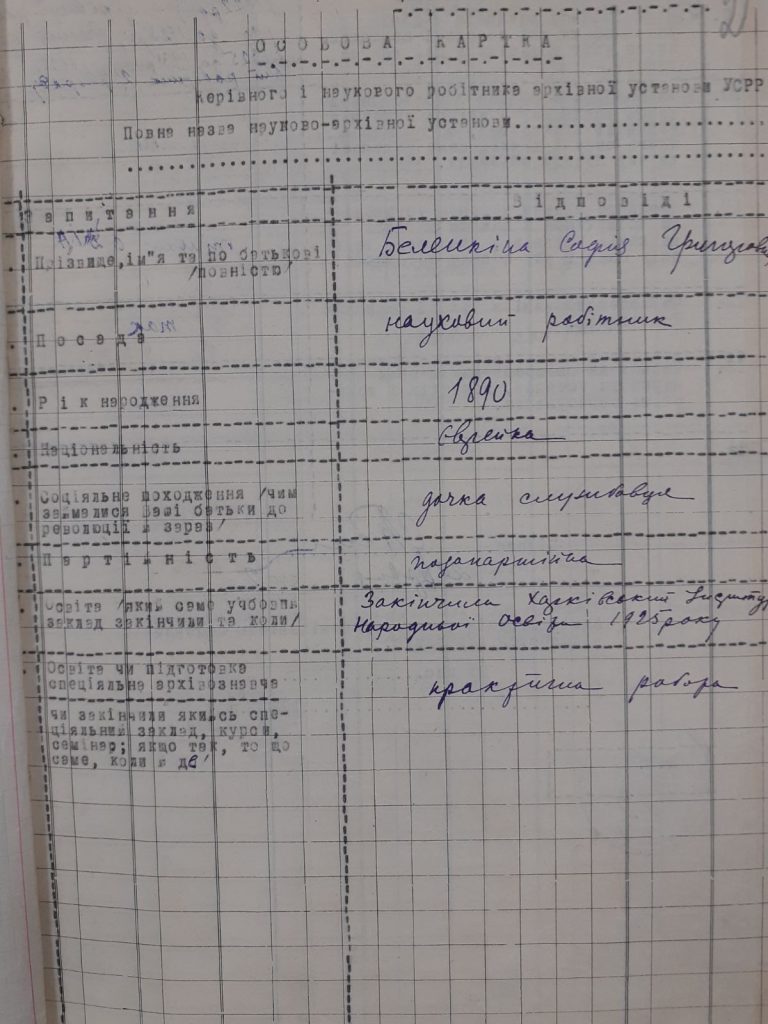 2
ОСОБОВА КАРТКА
Керівного і наукового робітника архівної установи УСРР
Повна назва науково-архівної установи..................
Запитання
Відповіді
Прізвище, ім"я та по батькові
/повністю/
Беленкіна Софія
Посада
так
науковий робітник
Рік народження
1890
Національність
Єврейка
Соціяльне походження /чим
займалися Ваші батьки до
революції й зараз/
дочка службовця
Партійність
позапартійна
Освіта /який саме учбовий
заклад закінчили та коли/
Закінчила Харківський Інститут
Народньої Освіти 1925 року
Освіта чи підготовка
спеціяльна архівознавча
практична робота
чи закінчили якийсь спе-
ціяльний заклад, курси,
семінар; якщо так, то що
саме, коли й де/